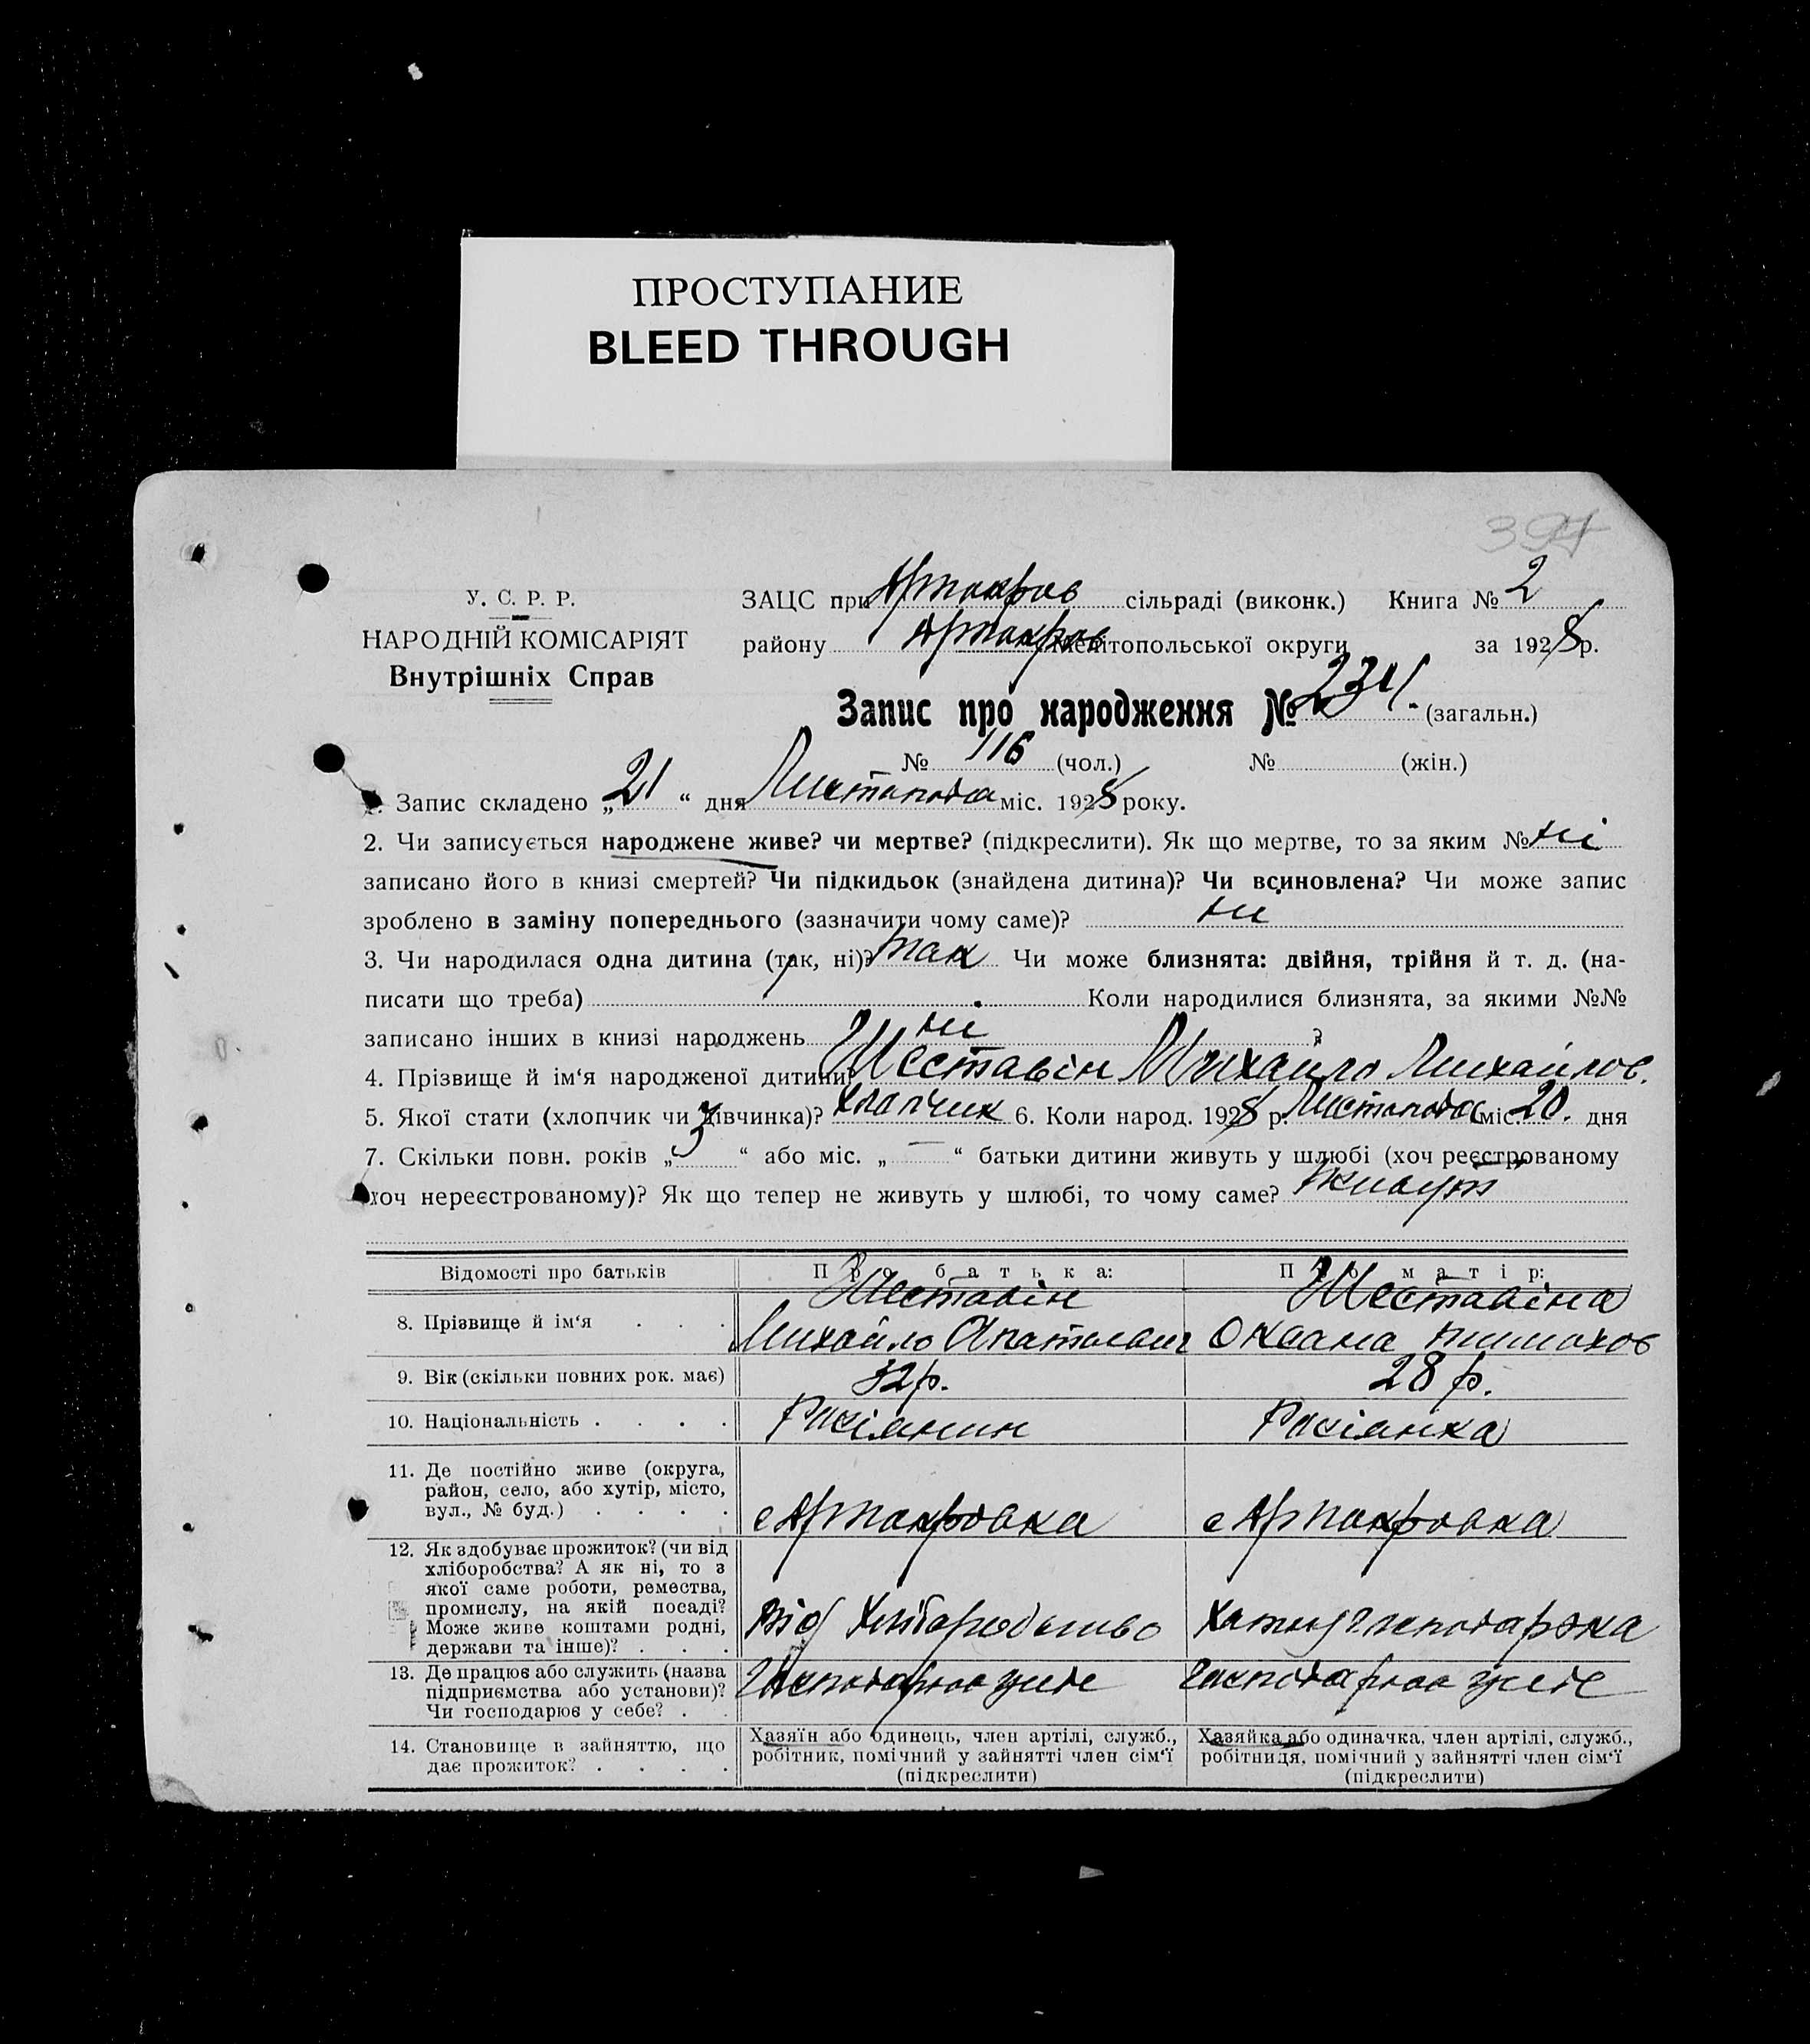 ПРОСТУПАНИЕ
BLEED THROUGH
397
У. С. Р. Р.
НАРОДНІЙ КОМІСАРІЯТ
Внутрішніх Справ
ЗАЦС при сільраді (виконк.) Книга № 2
району Мелітопольської округи за 1928 р.
Запис про народження № 234. (загальн.)
№ 116 (чол.) № (жін.)
1. Запис складено „21“ дня Листопада міс. 1928 року.
2. Чи записується народжене живе? чи мертве? (підкреслити). Як що мертве, то за яким № ні
записано його в книзі смертей? Чи підкидьок (знайдена дитина)? Чи всиновлена? Чи може запис
зроблено в заміну попереднього (зазначити чому саме)? ні
3. Чи народилася одна дитина (так, ні)? так Чи може близнята: двійня, трійня й т. д. (на-
писати що треба) Коли народилися близнята, за якими №№
записано інших в книзі народжень ні ?
4. Прізвище й ім‘я народженої дитини? Шеставін Михайло Михайлов.
5. Якої стати (хлопчик чи дівчинка)? хлопчик 6. Коли народ. 1928 р. Листопада міс. 20. дня
7. Скільки повн. років „3“ або міс. „—“ батьки дитини живуть у шлюбі (хоч реєстрованому
хоч нереєстрованому)? Як що тепер не живуть у шлюбі, то чому саме? живут
Відомості про батьків Про батька: Про матір:
8. Прізвище й ім‘я Шеставін Шеставіна
Михайло Оксана
9. Вік (скільки повних рок. має) 32 р. 28 р.
10. Національність Росіянин Росіянка
11. Де постійно живе (округа,
район, село, або хутір, місто,
вул., № буд.)
12. Як здобуває прожиток? (чи від
хліборобства? А як ні, то з
якої саме роботи, ремества,
промислу, на якій посаді?
Може живе коштами родні,
держави та інше)? Від Хліборобство Хатня господарка
13. Де працює або служить (назва
підприємства або установи)?
Чи господарює у себе? Господарює у себе Господарює у себе
14. Становище в зайняттю, що
дає прожиток?
Хазяїн або одинець, член артілі, служб.,
робітник, помічний у зайнятті член сім‘ї
(підкреслити)
Хазяйка або одиначка, член артілі, служб.,
робітниця, помічний у зайнятті член сім‘ї
(підкреслити)